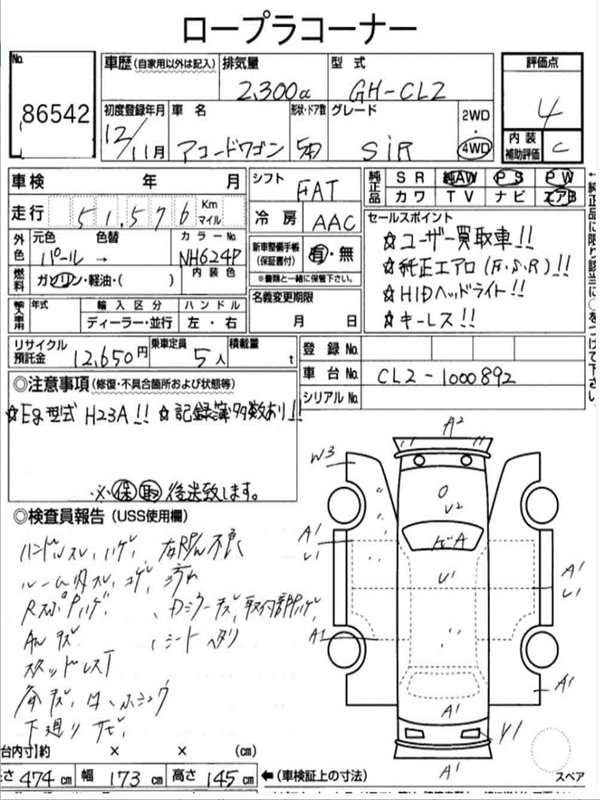 ロープラコーナー
No. 86542
車歴(自家用以外は記入) 排気量 2,300cc 型式 GH-CL2
評価点 4
初度登録年月 12/11月 車名 アコードワゴン 形状・ドア数 5D グレード SiR 2WD・4WD
内装補助評価 C
車検 年 月 シフト FAT 純正品 SR 純AW PS PW
カワ TV ナビ エアB
走行 51,576 Km マイル 冷房 AAC
セールスポイント
☆ユーザー買取車!!
☆純正エアロ(F.S.R)!!
☆HIDヘッドライト!!
☆キーレス!!
外色 元色 パール 色替 → カラーNo. NH624P
新車整備手帳(保証書付) 有・無
※書類と一緒に保管下さい。
燃料 ガソリン・軽油・( ) 内装色
名義変更期限 月 日
輸入車用 年式 輸入区分 ハンドル
ディーラー・並行 左・右
リサイクル預託金 12,650円 乗車定員 5人 積載量 t
登録No.
車台No. CL2-1000892
シリアルNo.
◎注意事項(修復・不具合箇所および状態等)
☆Eg型式 H23A!! ☆記録簿多数あり!!
※保 取 後送致します。
◎検査員報告(USS使用欄)
ハンドルスレ、ハゲ
ルーム内スレ、コゲ、汚れ
AWキズ 、シートヘタリ
スタッドレスT
下廻りサビ
W3 A2
U2
A1 A
U1
A1 A1
A1
A1
A1
A1
Y1
スペア
台内寸約 × × (cm)
長さ 474cm 幅 173cm 高さ 145cm ←(車検証上の寸法)
↑純正品に限り該当に○をつけて下さい。